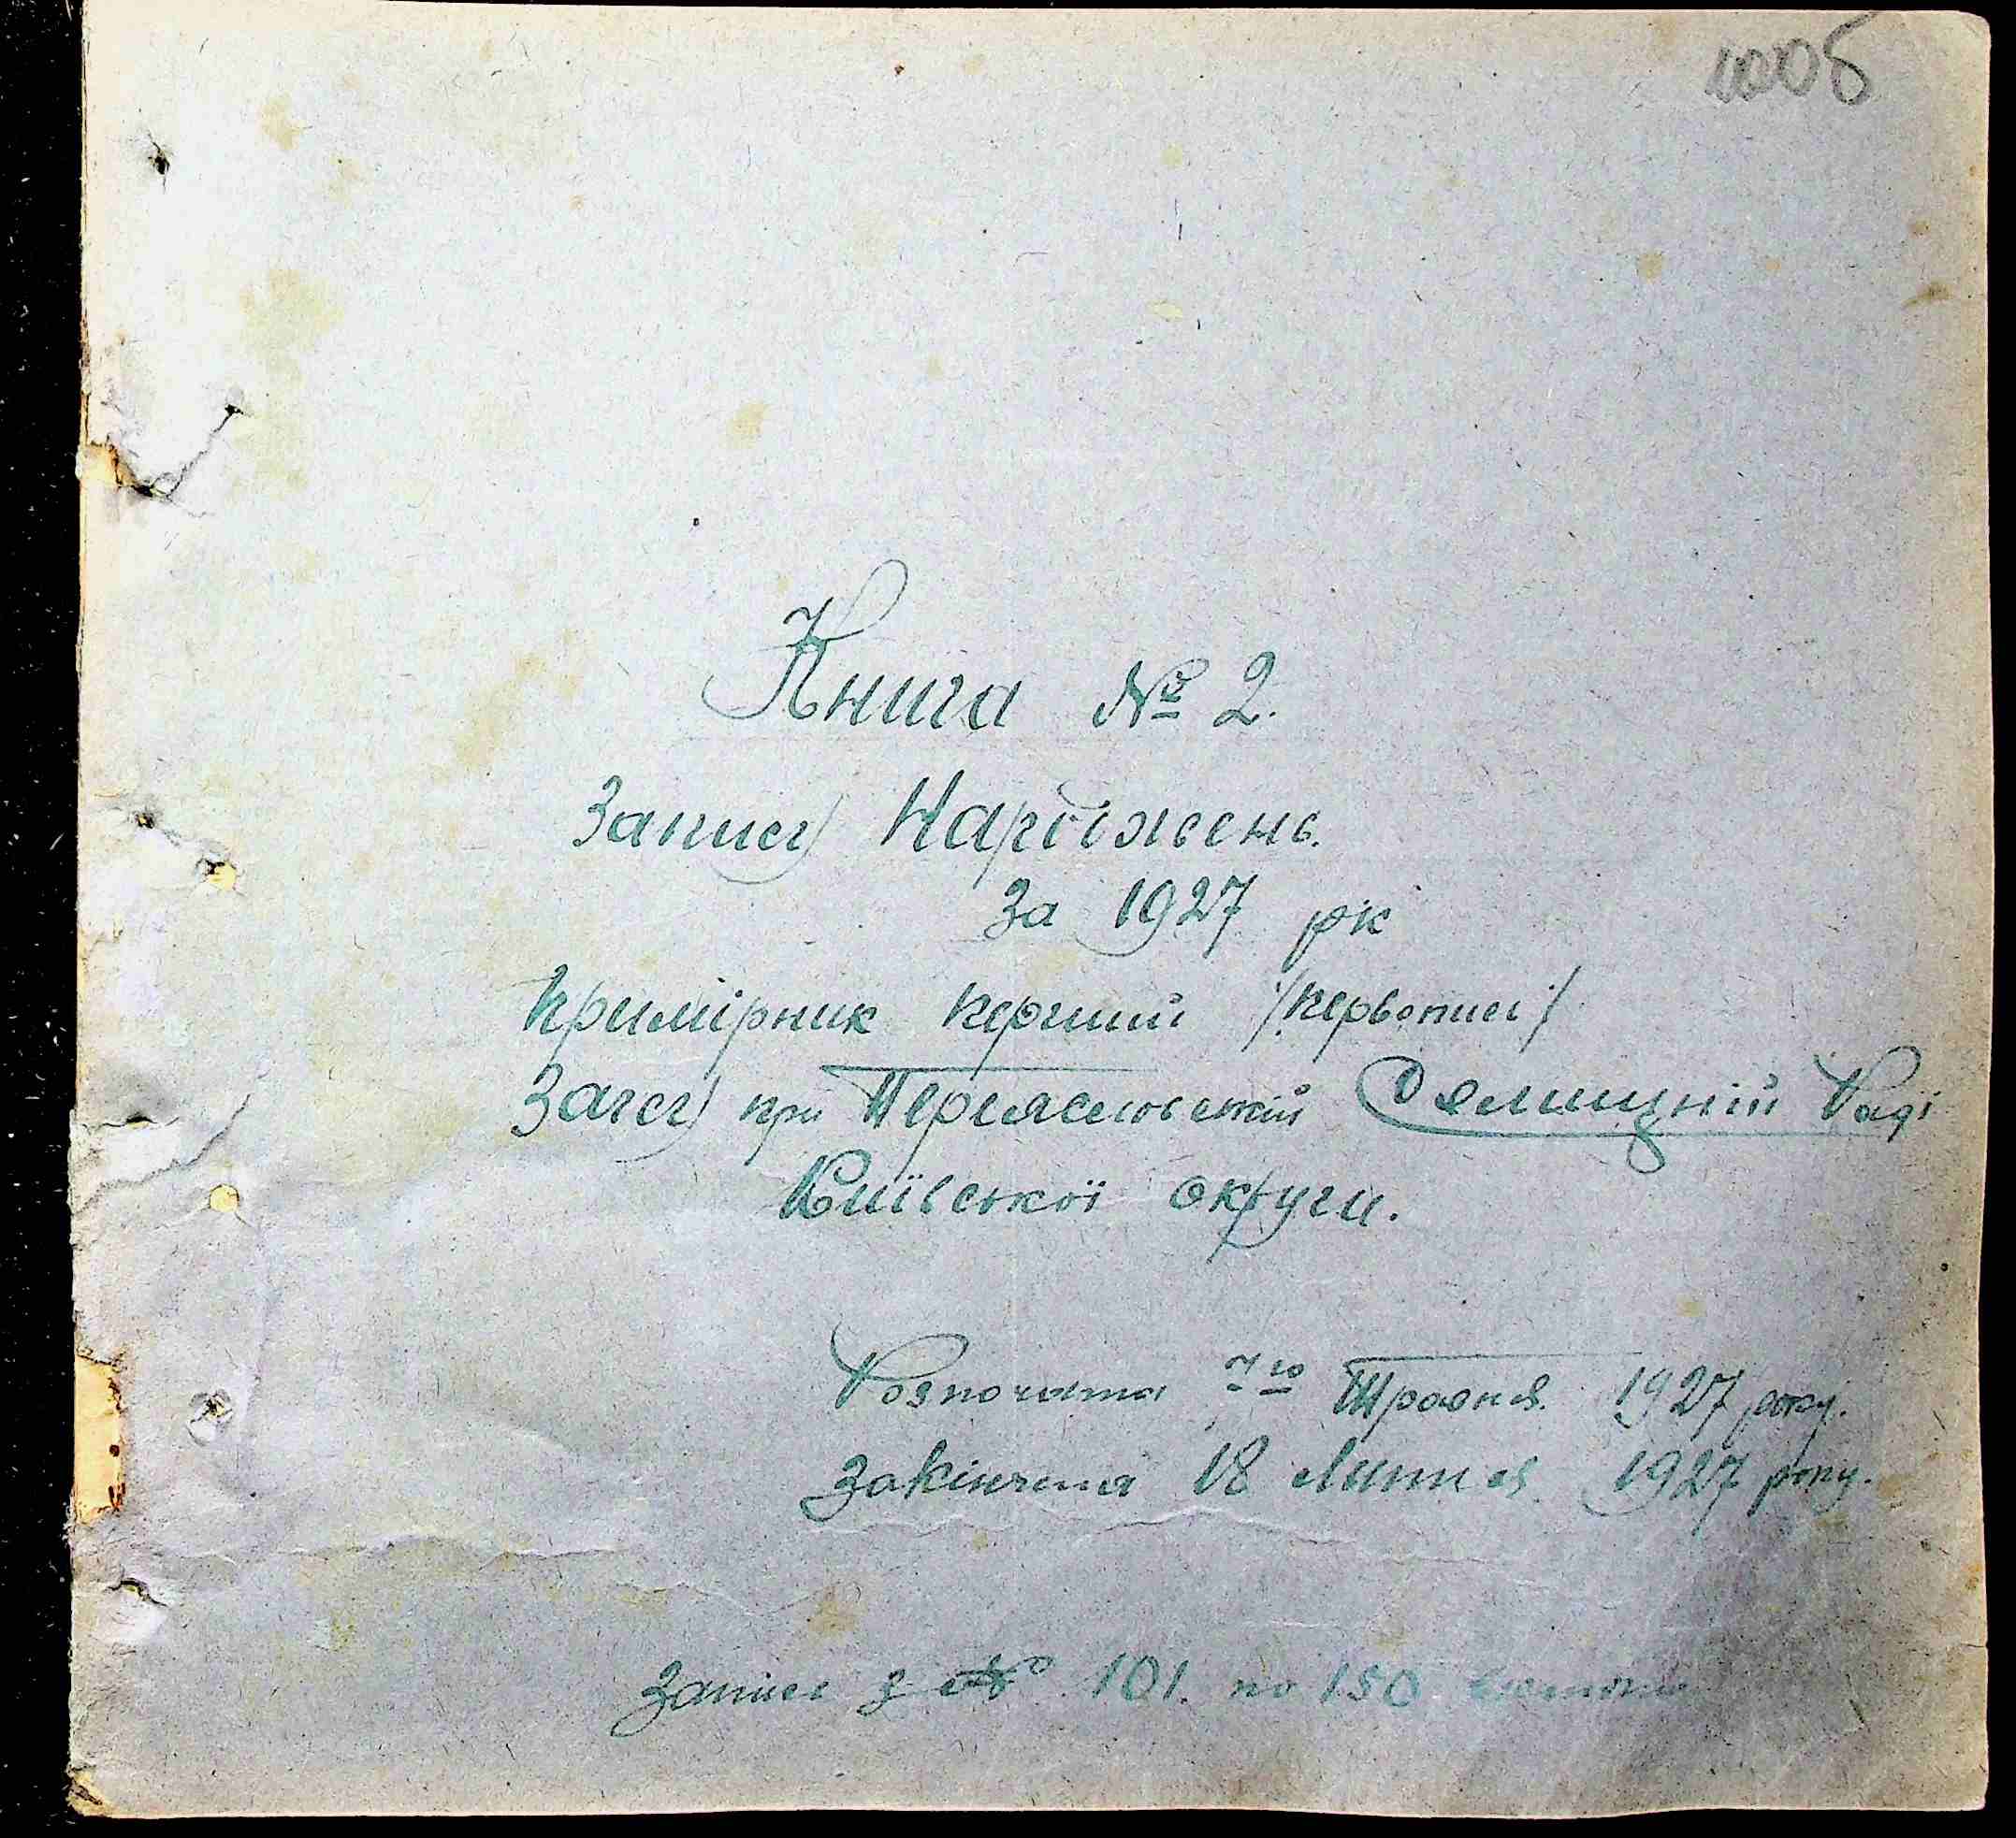 Книга № 2.
Запису Народжень.
За 1927 рік
Примірник перший /первопис/
Загсу при Переяславській Селищній Раді
Київської округи.
Розпочата 7го Травня 1927 року.
Закінчена 18 Липня 1927 року.
Записи з № 101. по 150